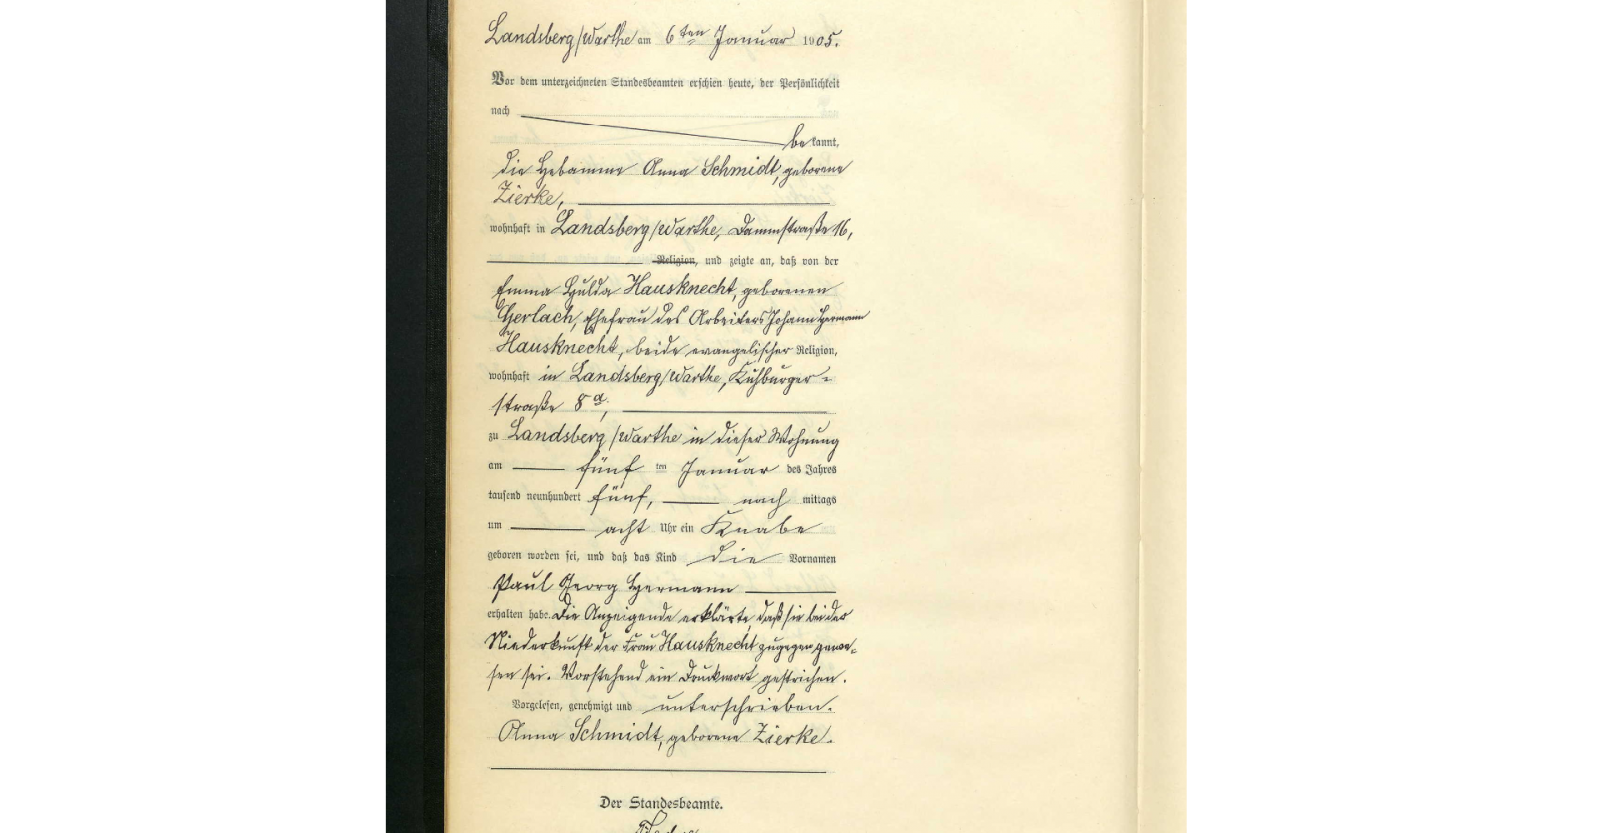 Landsberg/Warthe am 6ten Januar 1905.
Vor dem unterzeichneten Standesbeamten erschien heute, der Persönlichkeit
nach
bekannt,
die Hebamme Anna Schmidt, geborene
Zierke,
wohnhaft in Landsberg/Warthe, Dammstraße 16,
Religion, und zeigte an, daß von der
Emma Hulda Hausknecht, geborenen
Gerlach, Ehefrau des Arbeiters Johann Hermann
Hausknecht, beide evangelischer Religion,
wohnhaft in Landsberg/Warthe, Kuhburger-
straße 8a,
zu Landsberg/Warthe in dieser Wohnung
am fünf ten Januar des Jahres
tausend neunhundert fünf, nach mittags
um acht Uhr ein Knabe
geboren worden sei, und daß das Kind die Vornamen
Paul Georg Hermann
erhalten habe. Die Anzeigende erklärte, daß sie bei der
Niederkunft der Frau Hausknecht zugegen gewe-
sen sei. Vorstehend ein Druckwort gestrichen.
Vorgelesen, genehmigt und unterschrieben.
Anna Schmidt, geborene Zierke.
Der Standesbeamte.